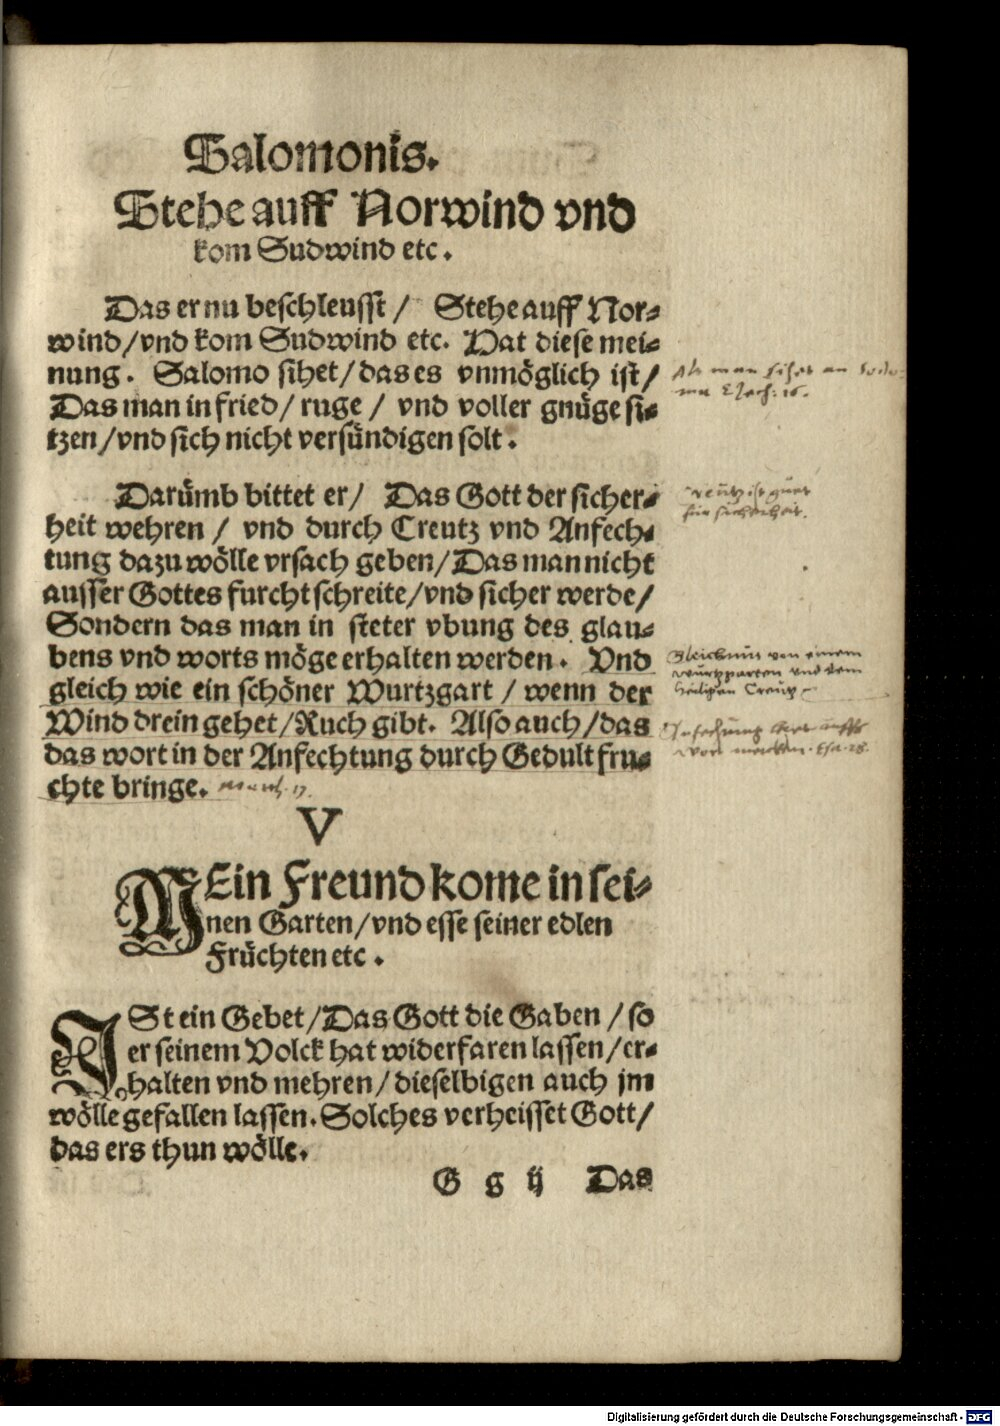 Salomonis.
Stehe auff Norwind vnd
kom Sudwind etc.
Das er nu beschleusst / Stehe auff Nor⸗
wind/vnd kom Sudwind etc. Hat diese mei⸗
nung. Salomo sihet/das es vnmöglich ist/
Das man in fried/ ruge / vnd voller gnüge si⸗
tzen/vnd sich nicht versündigen solt.
Darümb bittet er/ Das Gott der sicher⸗
heit wehren / vnd durch Creutz vnd Anfech⸗
tung dazu wölle vrsach geben/Das man nicht
ausser Gottes furcht schreite/vnd sicher werde/
Sondern das man in steter vbung des glau⸗
bens vnd worts möge erhalten werden. Vnd
gleich wie ein schöner Wurtzgart / wenn der
Wind drein gehet/Ruch gibt. Also auch/das
das wort in der Anfechtung durch Gedult fru⸗
chte bringe.
V
MEin Freund kome in sei⸗
nen Garten/vnd esse seiner edlen
Früchten etc.
ISt ein Gebet/Das Gott die Gaben /so
er seinem Volck hat widerfaren lassen/er⸗
halten vnd mehren/dieselbigen auch jm
wölle gefallen lassen. Solches verheisset Gott/
das ers thun wölle.
G g ij Das
Als man sihet an
Ezech: 16.
Creutz ist guet
für sicherheit.
Gleichnus von einem
wurtzgarten vnd dem
heiligen Creutz
Anfechtung
Esa. 28.
Digitalisierung gefördert durch die Deutsche Forschungsgemeinschaft - DFG